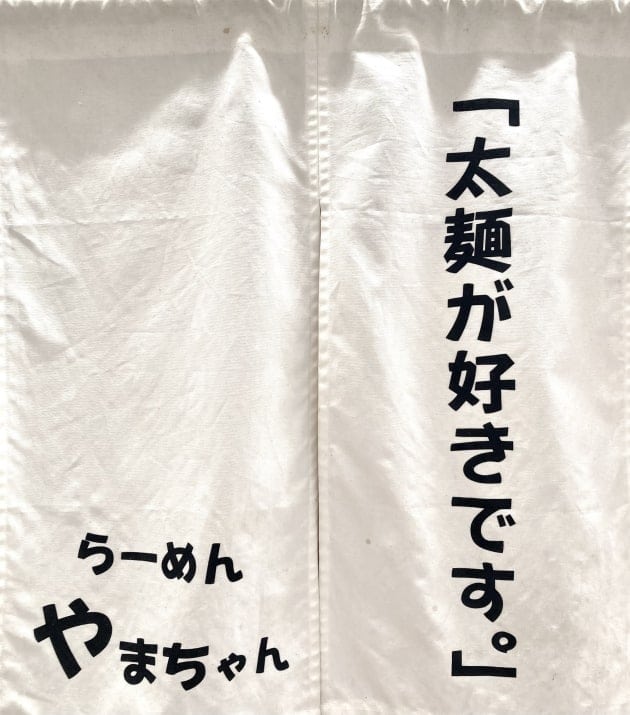 「太麺が好きです。」
らーめん
やまちゃん